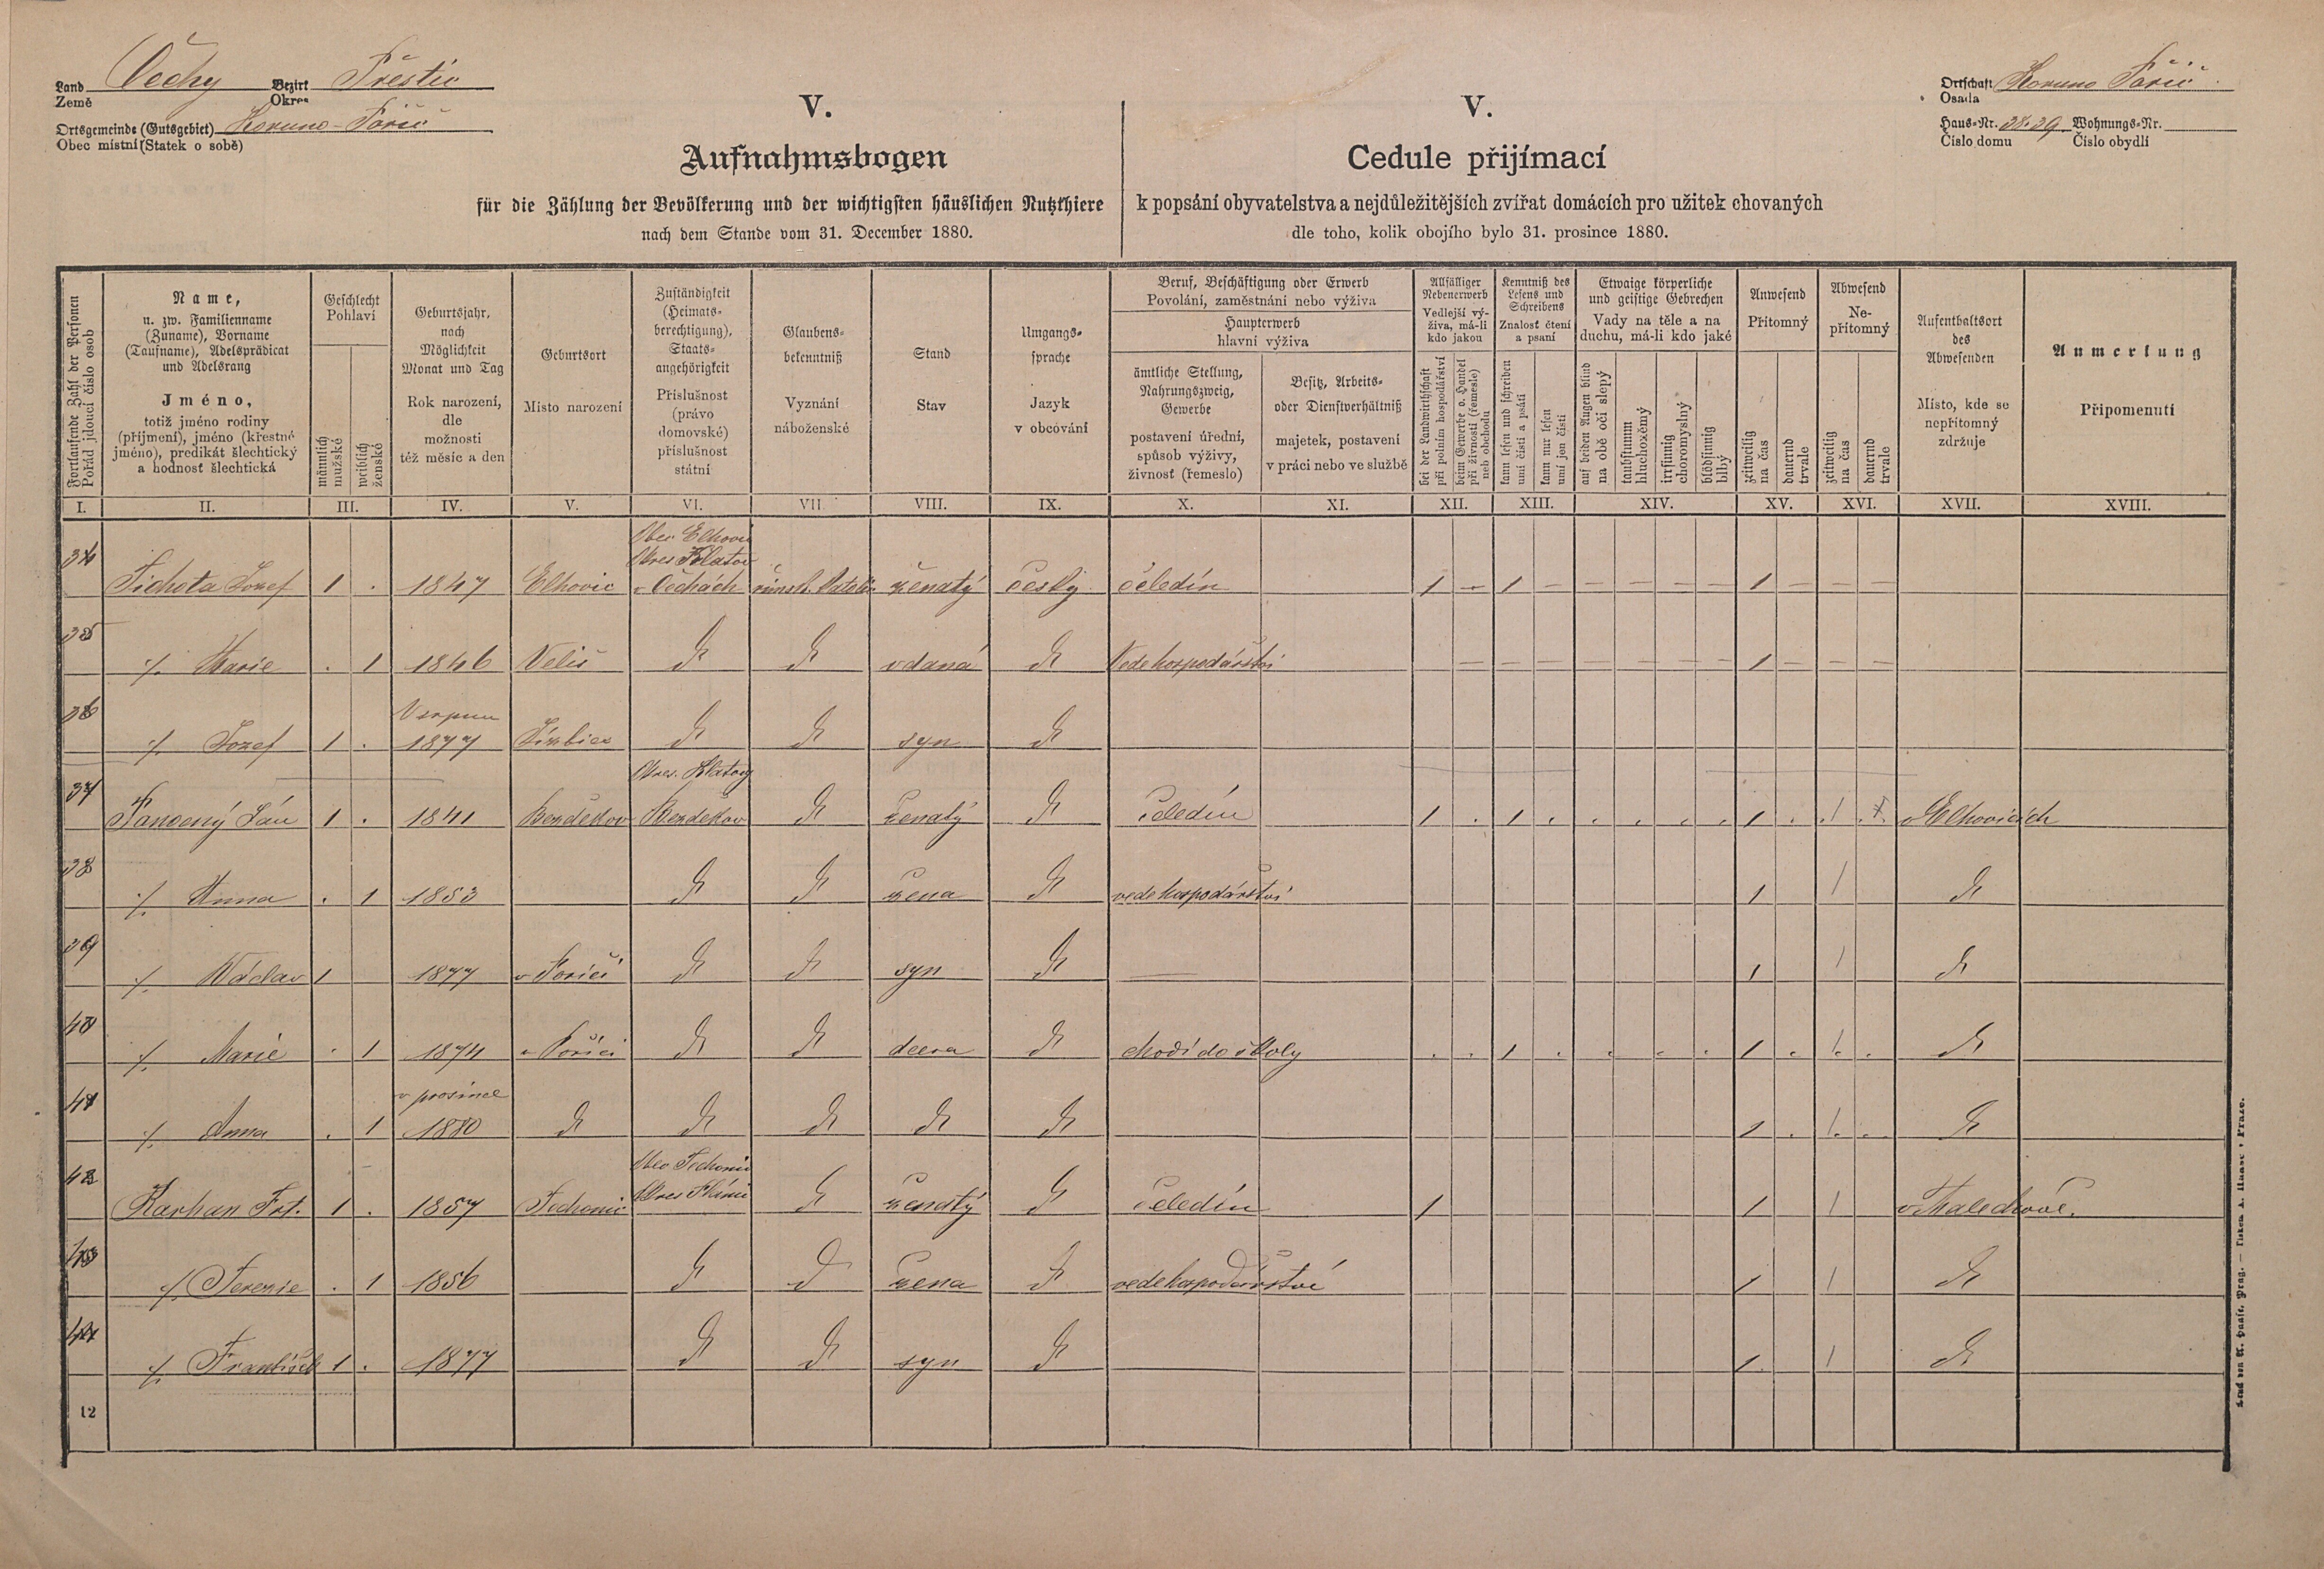 Land Čechy Bezirk Přestic
Země Okres
Ortsgemeinde (Gutsgebiet) Koruno-Poříč
Obec místní (Statek o sobě)
Ortschaft Koruno Poříč
Osada
Haus-Nr. 38.39 Wohnungs-Nr.
Číslo domu Číslo obydlí
V.
Aufnahmsbogen
für die Zählung der Bevölkerung und der wichtigsten häuslichen Nutzthiere
nach dem Stande vom 31. December 1880.
V.
Cedule přijímací
k popsání obyvatelstva a nejdůležitějších zvířat domácích pro užitek chovaných
dle toho, kolik obojího bylo 31. prosince 1880.
Fortlaufende Zahl der Personen
Pořád jdoucí číslo osob
Name,
u. zw. Familienname
(Zuname), Vorname
(Taufname), Adelsprädicat
und Adelsrang
Jméno,
totiž jméno rodiny
(příjmení), jméno (křestné
jméno), predikát šlechtický
a hodnosť šlechtická
Geschlecht
Pohlaví
männlich
mužské
weiblich
ženské
Geburtsjahr,
nach
Möglichkeit
Monat und Tag
Rok narození,
dle
možnosti
též měsíc a den
Geburtsort
Místo narození
Zuständigkeit
(Heimats-
berechtigung),
Staats-
angehörigkeit
Příslušnost
(právo
domovské)
příslušnost
státní
Glaubens-
bekenntniß
Vyznání
náboženské
Stand
Stav
Umgangs-
sprache
Jazyk
v obcování
Beruf, Beschäftigung oder Erwerb
Povolání, zaměstnání nebo výživa
Haupterwerb
hlavní výživa
ämtliche Stellung,
Nahrungszweig,
Gewerbe
postavení úřední,
spůsob výživy,
živnosť (řemeslo)
Besitz, Arbeits-
oder Dienstverhältniß
majetek, postavení
v práci nebo ve službě
Allfälliger
Nebenerwerb
Vedlejší vý-
živa, má-li
kdo jakou
bei der Landwirthschaft
při polním hospodářství
beim Gewerbe o. Handel
při živnosti (řemesle)
neb obchodu
Kenntniß des
Lesens und
Schreibens
Znalosť čtení
a psaní
kann lesen und schreiben
umí čísti a psáti
kann nur lesen
umí jen čísti
Etwaige körperliche
und geistige Gebrechen
Vady na těle a na
duchu, má-li kdo jaké
auf beiden Augen blind
na obě oči slepý
taubstumm
hluchoněmý
irrsinnig
choromyslný
blödsinnig
blbý
Anwesend
Přítomný
zeitweilig
na čas
dauernd
trvale
Abwesend
Ne-
přítomný
zeitweilig
na čas
dauernd
trvale
Aufenthaltsort
des
Abwesenden
Místo, kde se
nepřítomný
zdržuje
Anmerkung
Připomenutí
I. II. III. IV. V. VI. VII. VIII. IX. X. XI. XII. XIII. XIV. XV. XVI. XVII. XVIII.
Obec Elhovic
Okres Klatov
34 Tichota Jozef 1 . 1847 Elhovic v Čechách římsk. katolic. ženatý český čeledín 1 – 1 – – – – – 1 – – –
35 ⁒ Marie . 1 1846 Veliš dt dt vdaná dt Vede hospodářství – – – – – – – 1 – – –
V srpnu
36 ⁒ Jozef 1 . 1877 dt dt syn dt
Okres. Klatovy
37 Jan 1 . 1841 Bezděkov Bezděkov dt ženatý dt čeledín 1 . 1 . . . . . 1 . 1 . v Elhovicích
38 ⁒ Anna . 1 1853 dt dt žena dt vede hospodářství 1 1 dt
39 ⁒ Václav 1 1877 v Poříči dt dt syn dt — 1 1 dt
40 ⁒ Marie . 1 1874 v Poříči dt dt dcera dt chodí do školy . . 1 . . . . 1 . 1 . dt
v prosinci
41 ⁒ Anna . 1 1880 dt dt dt dt dt 1 . 1 . dt
Obec Techonic
Okres
42 Karhan Frt. 1 . 1857 Techonic dt ženatý dt čeledín 1 1 1 v Malechově.
43 ⁒ Terezie . 1 1856 dt dt žena dt vede hospodářství 1 1 dt
44 ⁒ František 1 . 1877 dt dt syn dt 1 1 dt
12
Druck von A. Haase, Prag. — Tiskem A. Haase v Praze.